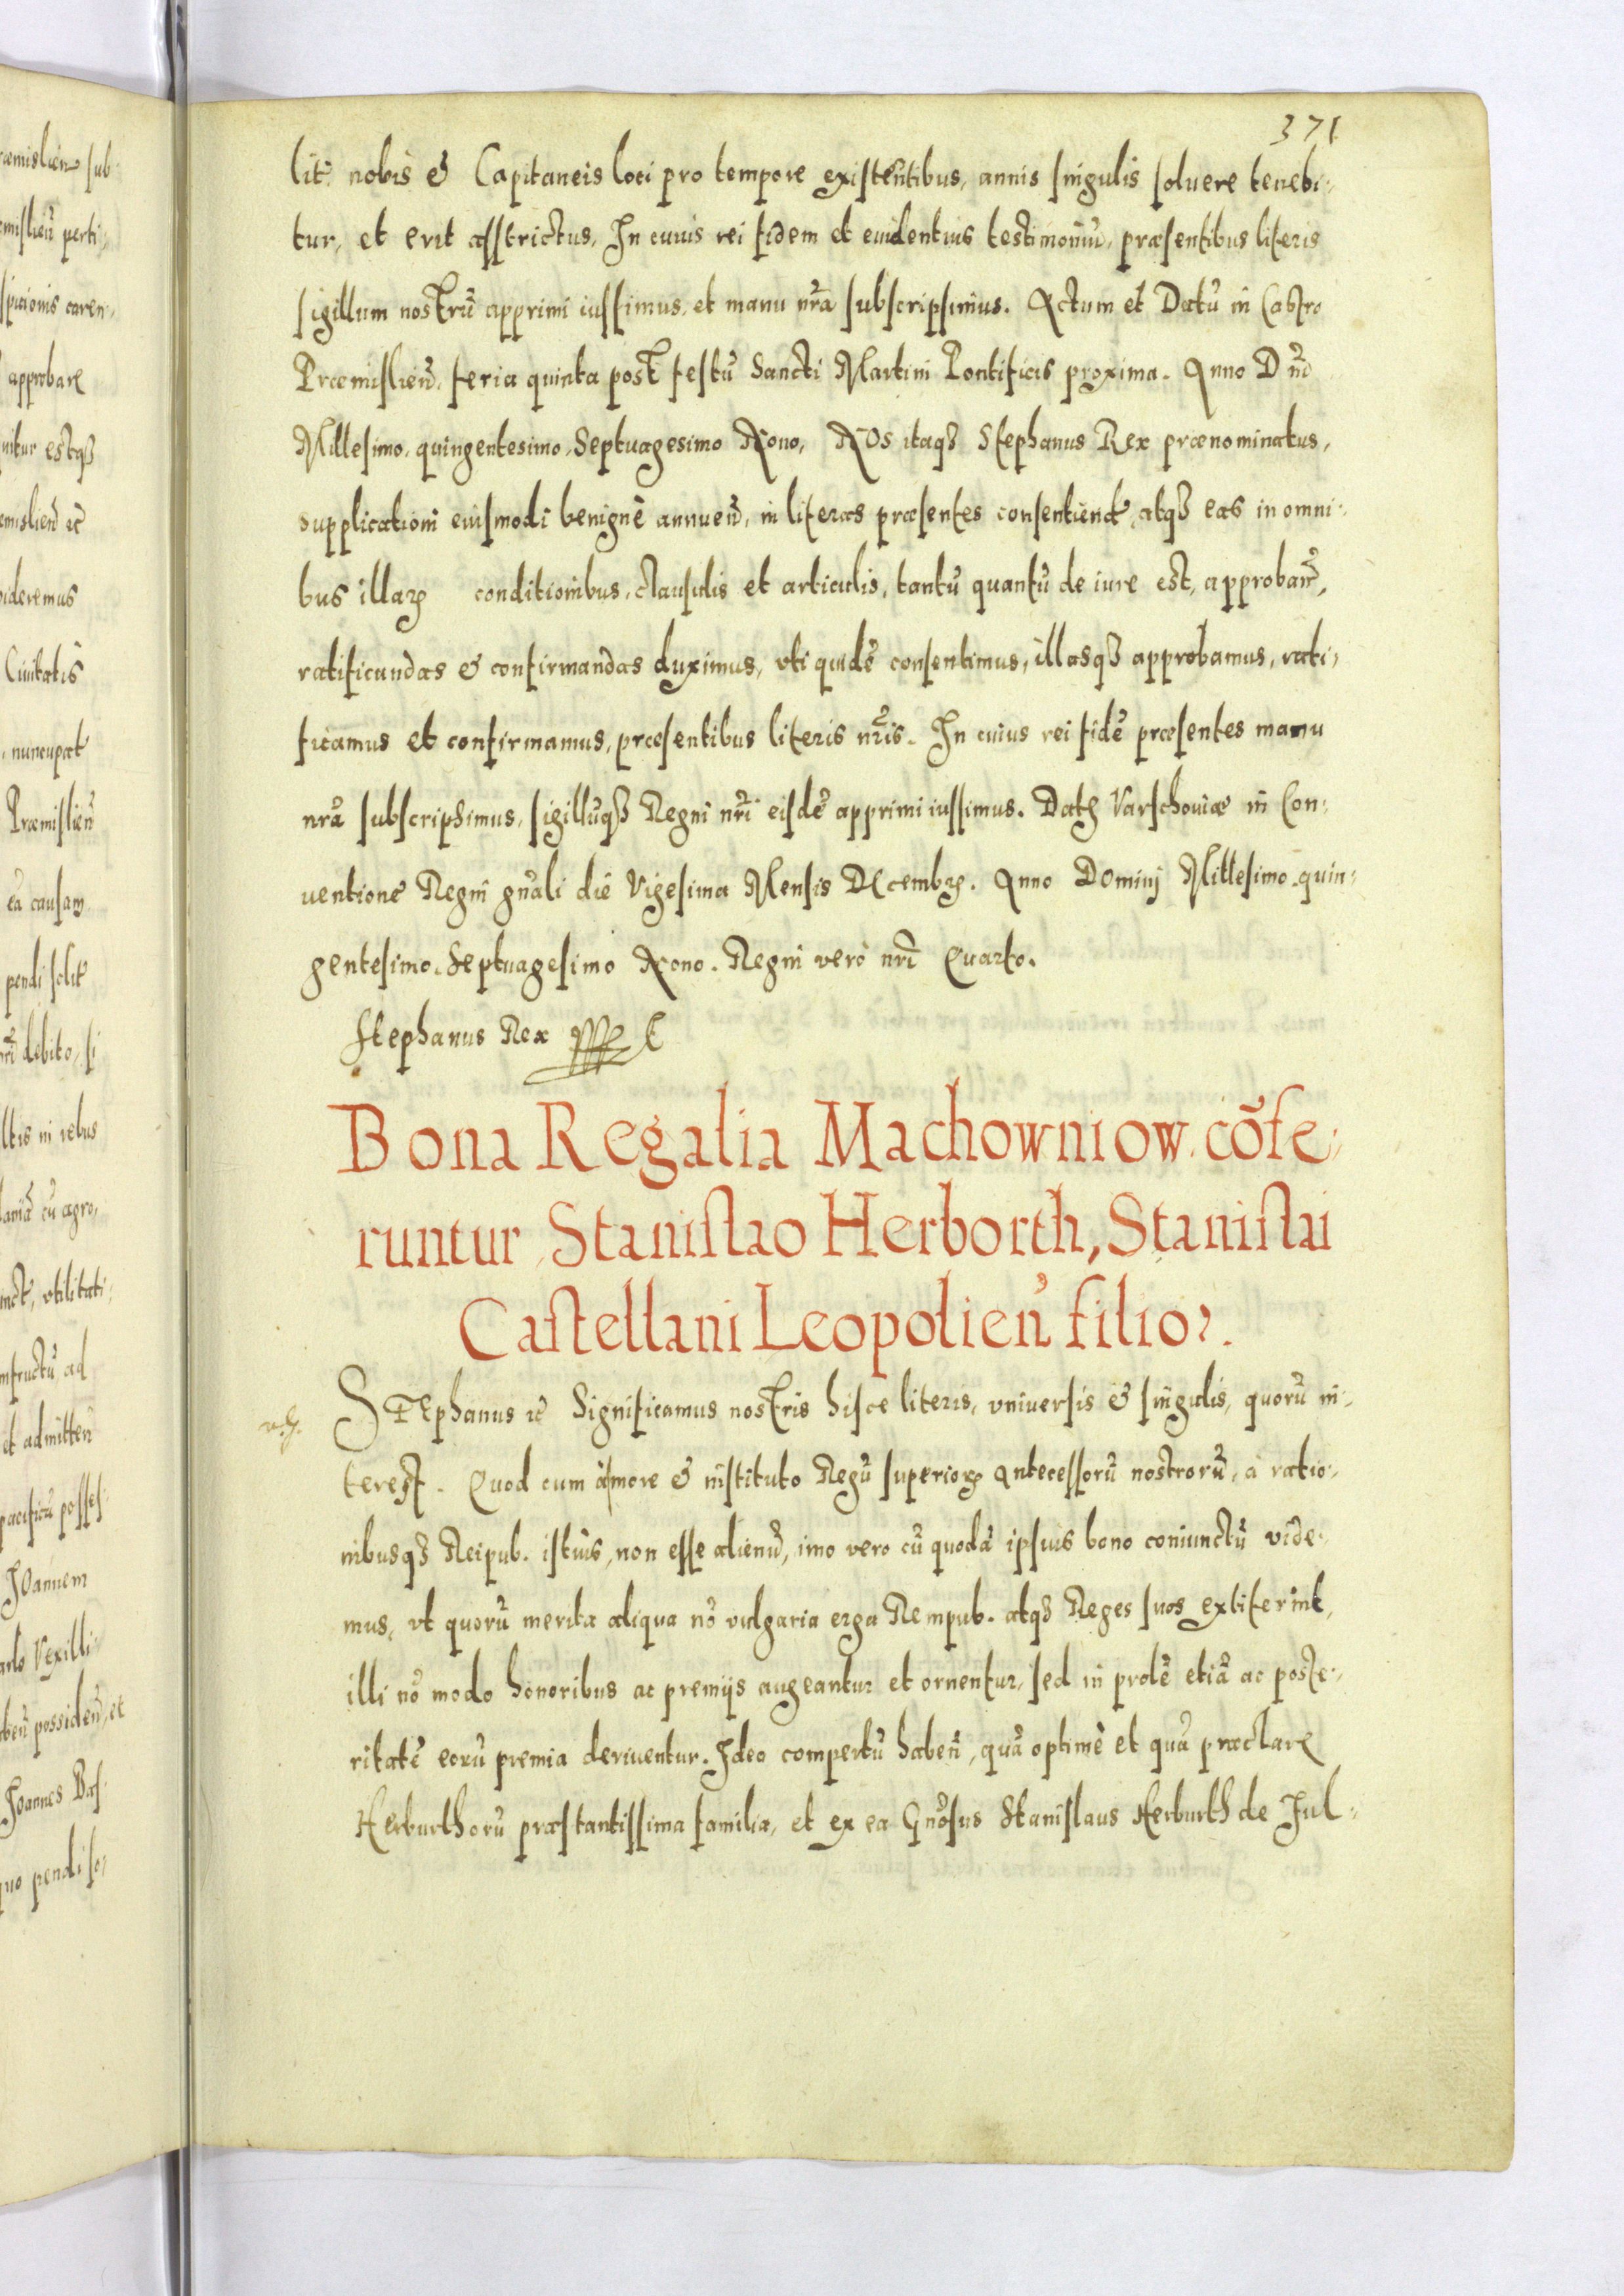 371
lit nobis & Capitaneis loci pro tempore existentibus, annis singulis soluere tenebi-
tur, et erit asstrictus. In cuius rei fidem et euidentius testimoniũ, præsentibus literis
sigillum nostrũ apprimi iussimus, et manu nrã subscripsimus. Actum et Datũ in Castro
Præmislieñ, feria quinta post festũ Sancti Martini Pontificis proxima. Anno Dñi
Millesimo, quingentesimo, Septuagesimo Nono, NOs itaqꝫ Stephanus Rex prænominatus,
supplicationi eiusmodi benignè annueñ, in literas præsentes consentiend, atqꝫ eas in omni-
bus illaꝝ conditionibus, clausulis et articulis, tantũ quantũ de iure est, approbañ,
ratificandas & confirmandas duximus, vti quidẽ consentimus, illasqꝫ approbamus, rati-
ficamus et confirmamus, præsentibus literis nr̃is. In cuius rei fidẽ præsentes manu
nrã subscripsimus, sigillũqꝫ Regni nr̃i eisdẽ apprimi iussimus. Datꝫ Varschouiæ in Con-
uentione Regni gnãli die Vigesima Mensis Decembꝝ. Anno Dominj Millesimo quin-
gentesimo Septuagesimo Nono. Regni verò nr̃i Quarto.
Stephanus Rex
Bona Regalia Machowniow cõfe-
runtur Stanislao Herborth, Stanislai
Castellani Leopolieñ filio.
STEphanus ꝛc Significamus nostris hisce literis, vniuersis & singulis, quorũ in-
terest. Quod cum à more & instituto Regũ superioꝝ Antecessorũ nostrorũ, a ratio-
nibusqꝫ Reipub. istius, non esse alienũ, imo vero cũ quodã ipsius bono coniunctũ vide-
mus, vt quorũ merita aliqua nõ vulgaria erga Rempub. atqꝫ Reges suos extiterint,
illi nõ modo honoribus ac premijs augeantur et ornentur, sed in prolẽ etiã ac poste-
ritatẽ eorũ premia deriuentur. Ideo compertũ habeñ, quã optimè et quã præclare
Herburthorũ præstantissima familia, et ex ea Gnõsus Stanislaus Herburth de Ful-